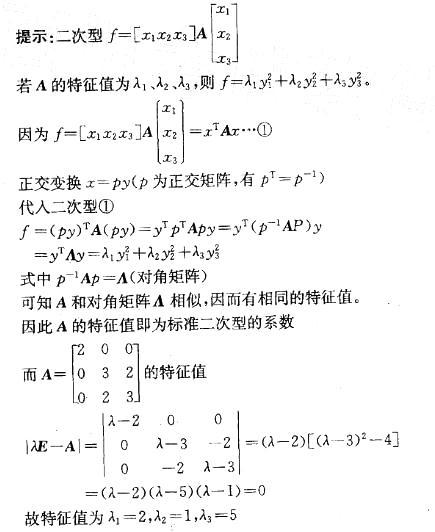 提示:二次型 f=[x₁x₂x₃]A[x₁ x₂ x₃]
若 A 的特征值为 λ₁、λ₂、λ₃,则 f=λ₁y₁²+λ₂y₂²+λ₃y₃²。
因为 f=[x₁x₂x₃]A[x₁ x₂ x₃]=xᵀAx…①
正交变换 x=py(p 为正交矩阵,有 pᵀ=p⁻¹)
代入二次型①
f=(py)ᵀA(py)=yᵀpᵀApy=yᵀ(p⁻¹AP)y
=yᵀΛy=λ₁y₁²+λ₂y₂²+λ₃y₃²
式中 p⁻¹Ap=Λ(对角矩阵)
可知 A 和对角矩阵 Λ 相似,因而有相同的特征值。
因此 A 的特征值即为标准二次型的系数
而 A=[2 0 0; 0 3 2; 0 2 3]的特征值
|λE-A|=|λ-2 0 0; 0 λ-3 -2; 0 -2 λ-3|=(λ-2)[(λ-3)²-4]
=(λ-2)(λ-5)(λ-1)=0
故特征值为 λ₁=2,λ₂=1,λ₃=5